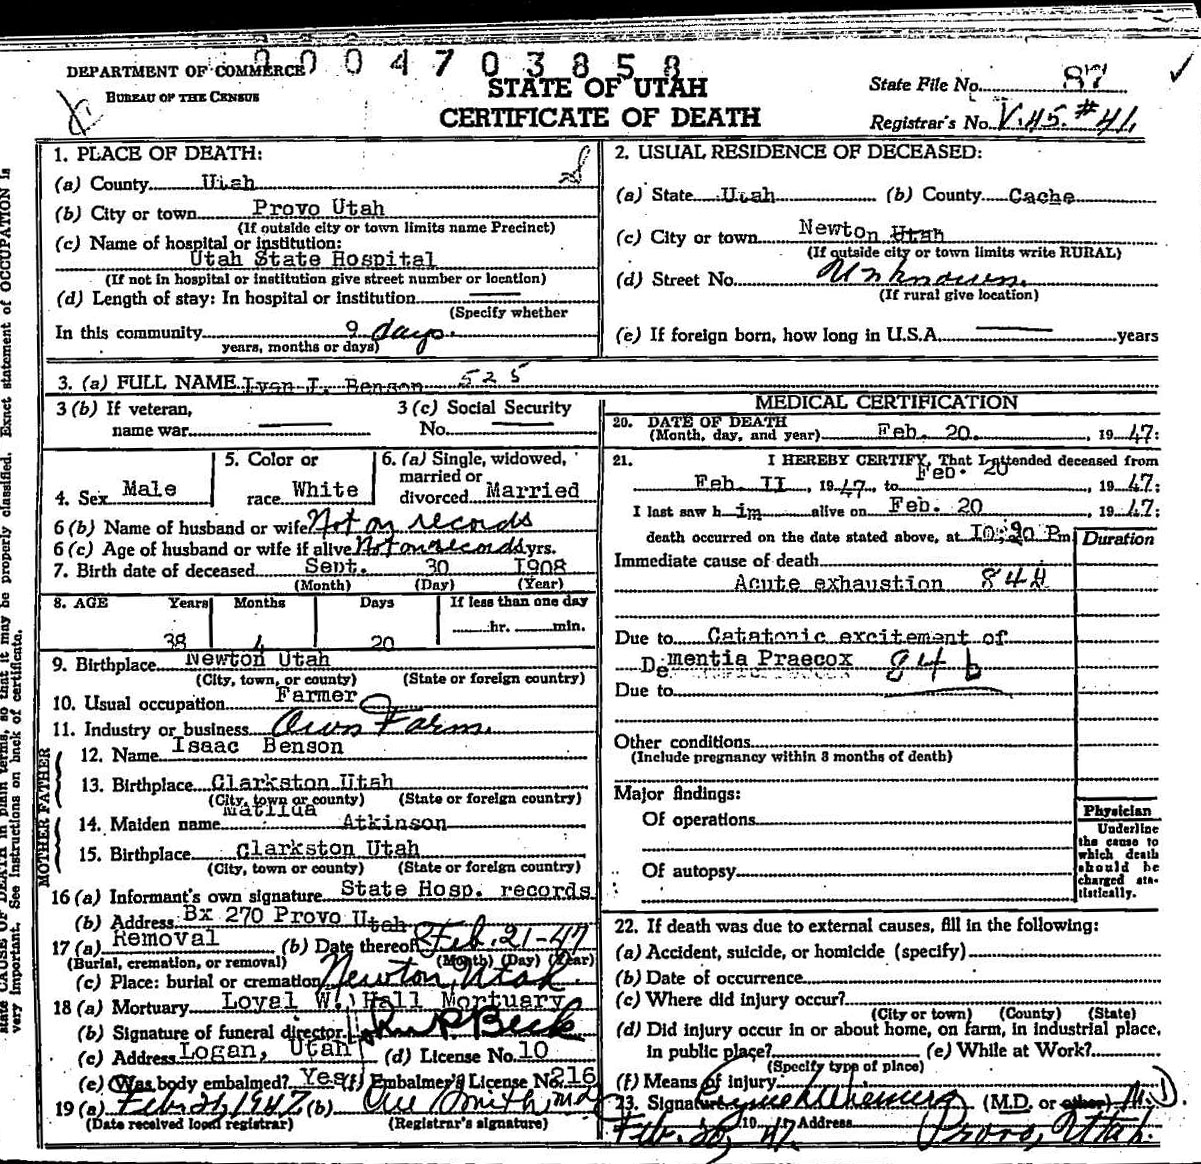 0004703858
DEPARTMENT OF COMMERCE
BUREAU OF THE CENSUS
STATE OF UTAH
CERTIFICATE OF DEATH
State File No. 87
Registrar's No. V.45. #41.
1. PLACE OF DEATH:
(a) County Utah
(b) City or town Provo Utah
(If outside city or town limits name Precinct)
(c) Name of hospital or institution:
Utah State Hospital
(If not in hospital or institution give street number or location)
(d) Length of stay: In hospital or institution
(Specify whether
In this community 9 days.
years, months or days)
2. USUAL RESIDENCE OF DECEASED:
(a) State Utah (b) County Cache
(c) City or town Newton Utah
(If outside city or town limits write RURAL)
(d) Street No. Unknown.
(If rural give location)
(e) If foreign born, how long in U.S.A. years
3. (a) FULL NAME Ivan J. Benson 525
3 (b) If veteran,
name war
3 (c) Social Security
No.
4. Sex Male
5. Color or
race White
6. (a) Single, widowed,
married or
divorced Married
6 (b) Name of husband or wife Not on records
6 (c) Age of husband or wife if alive Not on records yrs.
7. Birth date of deceased Sept. 30 1908
(Month) (Day) (Year)
8. AGE Years Months Days If less than one day
38 4 20 hr. min.
9. Birthplace Newton Utah
(City, town, or county) (State or foreign country)
10. Usual occupation Farmer
11. Industry or business Own Farm.
FATHER
12. Name Isaac Benson
13. Birthplace Clarkston Utah
(City, town or county) (State or foreign country)
MOTHER
14. Maiden name Matilda Atkinson
15. Birthplace Clarkston Utah
(City, town or county) (State or foreign country)
16 (a) Informant's own signature State Hosp. records
(b) Address Bx 270 Provo Utah
17 (a) Removal (b) Date thereof Feb. 21-47
(Burial, cremation, or removal) (Month) (Day) (Year)
(c) Place: burial or cremation Newton, Utah.
18 (a) Mortuary Loyal W. Hall Mortuary
(b) Signature of funeral director P. Beck
(c) Address Logan, Utah (d) License No. 10
(e) Was body embalmed? Yes (f) Embalmer's License No. 216
19 (a) Feb 21, 1947 (b) Smith, md
(Date received local registrar) (Registrar's signature)
MEDICAL CERTIFICATION
20. DATE OF DEATH
(Month, day, and year) Feb. 20. , 1947:
21. I HEREBY CERTIFY, That I attended deceased from
Feb. II , 1947, to Feb. 20 , 1947:
I last saw him alive on Feb. 20 , 1947:
death occurred on the date stated above, at 10:20 P m
Duration
Immediate cause of death
Acute exhaustion
Due to Catatonic excitement of
Dementia Praecox 84 b
Due to
Other conditions
(Include pregnancy within 3 months of death)
Major findings:
Of operations
Of autopsy
Physician
Underline
the cause to
which death
should be
charged sta-
tistically.
22. If death was due to external causes, fill in the following:
(a) Accident, suicide, or homicide (specify)
(b) Date of occurrence
(c) Where did injury occur?
(City or town) (County) (State)
(d) Did injury occur in or about home, on farm, in industrial place,
in public place? (e) While at Work?
(Specify type of place)
(f) Means of injury
23. Signature (M.D. or other) M.D.
Feb. 20, 1947. Address Provo, Utah.
state CAUSE OF DEATH in plain terms, so that it may be properly classified. Exact statement of OCCUPATION is
very important. See instructions on back of certificate.